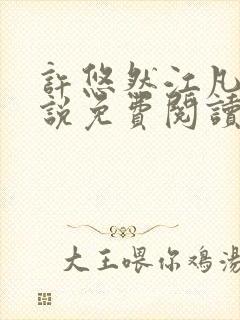 許悠然江凡
說免費閱讀
大王喂你鸡湯